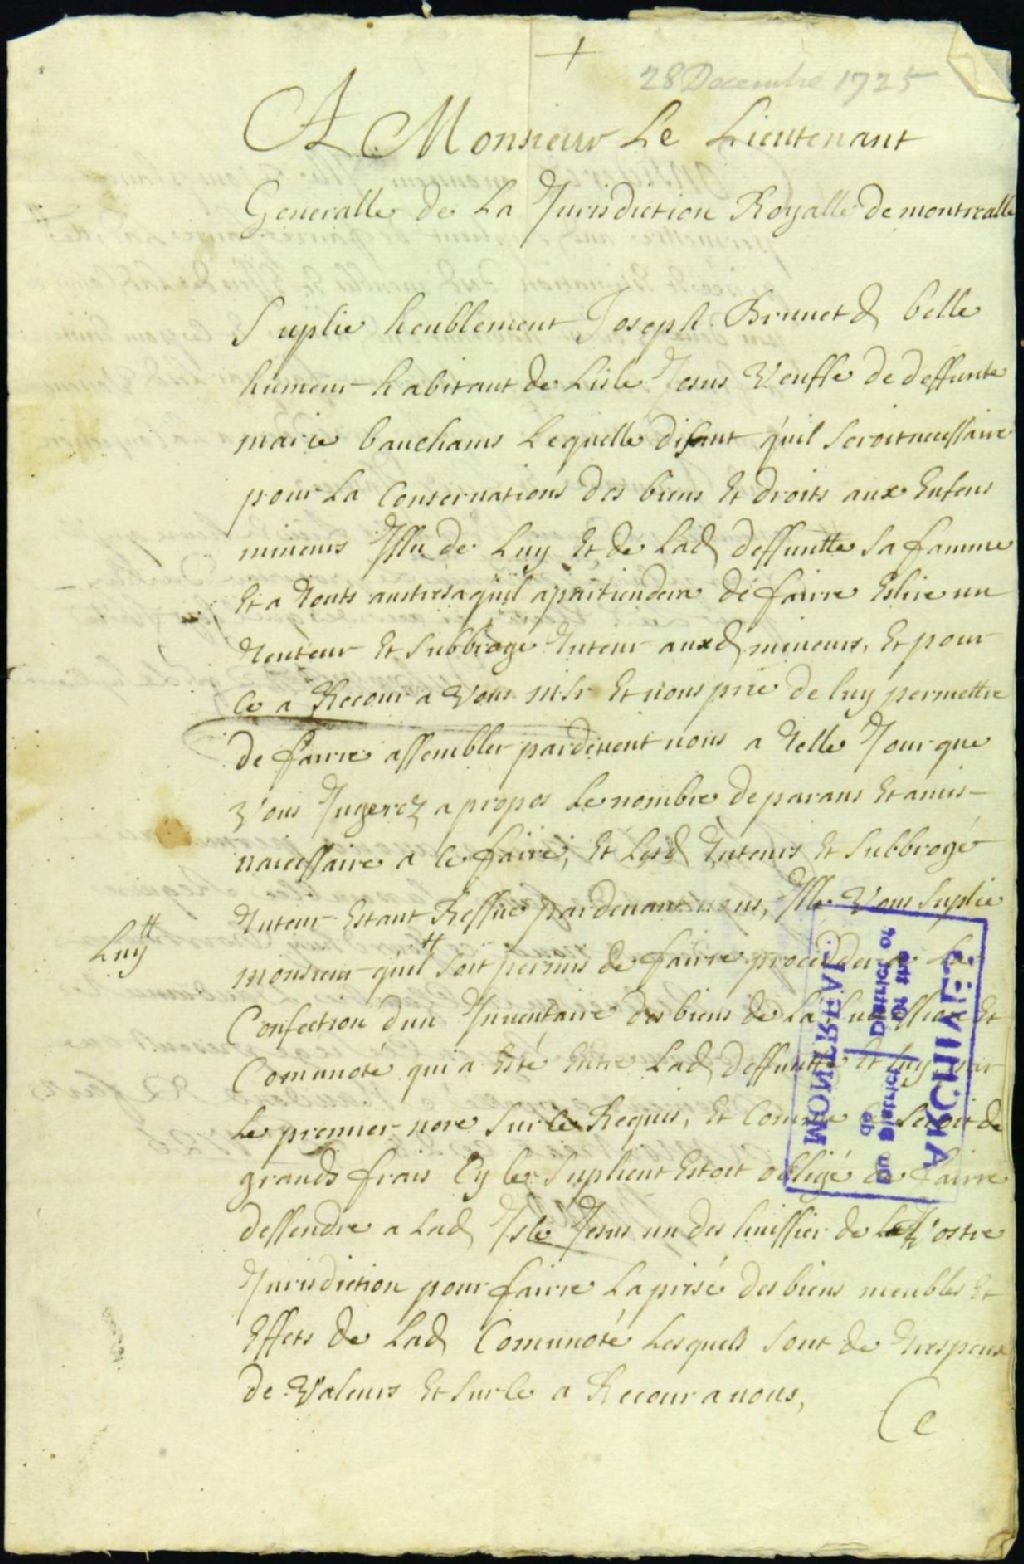 28 Decembre 1725
A Monsieur Le Lieutenant
Generalle de La Jurisdiction Royalle de montrealle
Suplie heublement Joseph Brunet d belle
humeur habitant de Lisle Jesus Veuffe de deffunte
marie bauchams Lequelle disant quil seroit necessaire
pour La Conservations des biens Et droits aux Enfens
mineurs Issu de Luy Et de Lad deffuntte sa famme
Et a touts austres a quil apartiendera de faire Eslire un
teuteur Et Subbrogé tuteur auxd mineurs, Et pour
Ce a Recour a Vous Msr Et vous prie de luy permettre
de faire assembler pardevent vous a telle Jour que
Vous Jugerez a propos Le nombre de parans Et amis
naicessaire a ce faire, Et Lesd tuteurs Et Subbrogé
tuteur Estant Ressue pardevant vous, Ille Vous Suplie
Luy
monsieur quil soit permis de faire proceder a La
Confection dun Inventaire des biens de La Sucession Et
Comunoté qui a Esté Entre Lad Deffuntte Et Luy par
Le premier nore sur ce Requis, Et Comme Seroit de
grands frais Cy le Suplient Estoit obligé de faire
dessendre a Lad Isle Jesus un des huissier de Vostre
Jurisdiction pour faire La prisé des biens meubles Et
Effets de Lad Comunoté Lesquels sont de tres peus
de Valeurs Et sur Ce a Recour a vous,
Ce
ARCHIVES
du District de
of the District of
MONTREAL